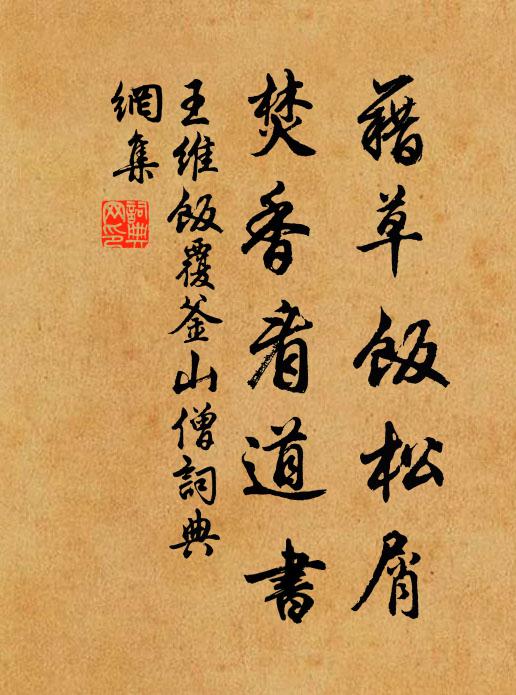 藉草飯松屑
焚香看道書
王維飯覆釜山僧詞典
網集
詞典
网印